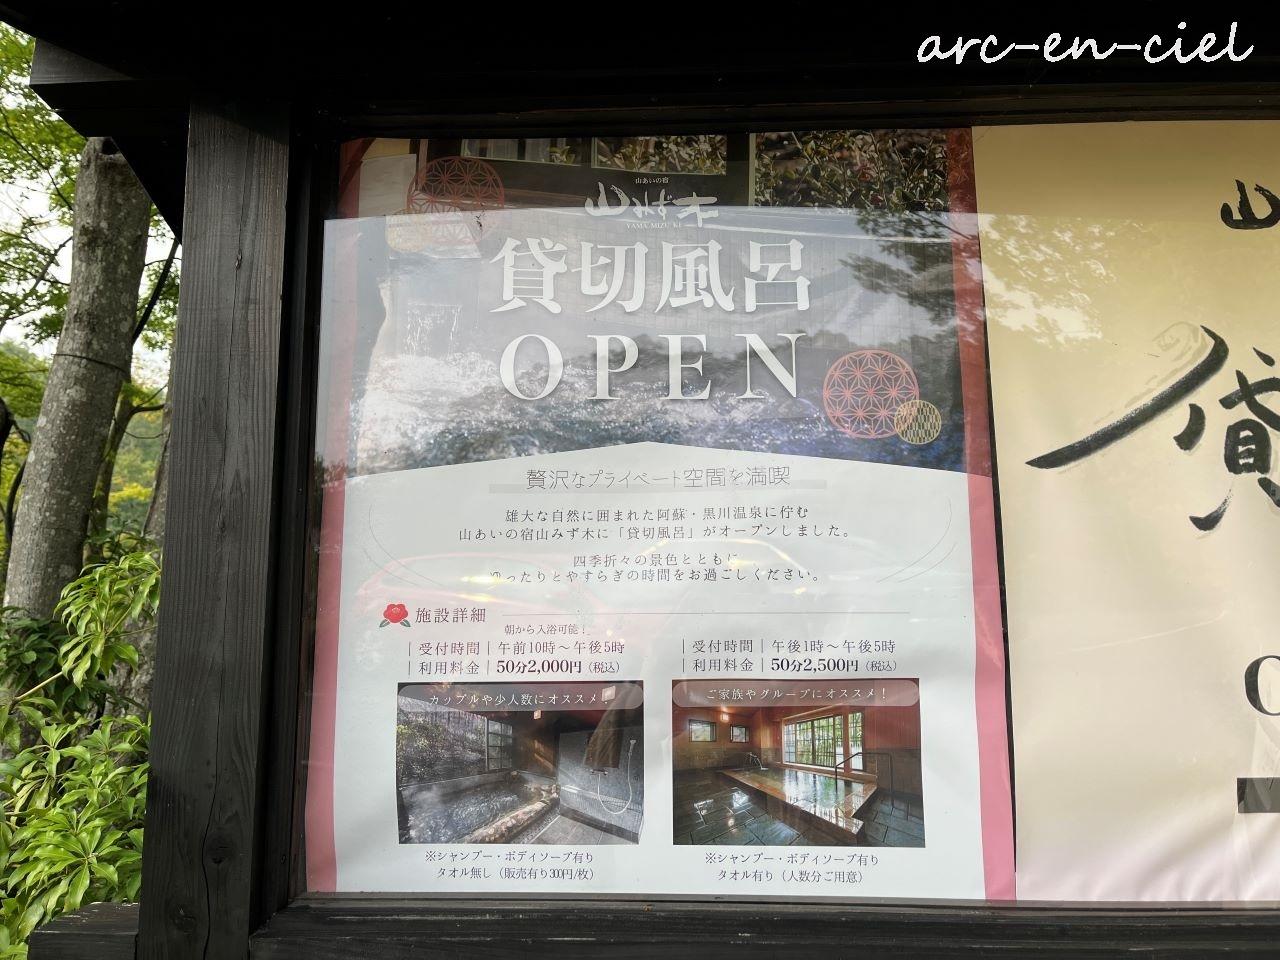 arc-en-ciel
山あいの宿
山みず木
YAMA MIZU KI
貸切風呂
OPEN
贅沢なプライベート空間を満喫
雄大な自然に囲まれた阿蘇・黒川温泉に佇む
山あいの宿山みず木に「貸切風呂」がオープンしました。
四季折々の景色とともに
ゆったりとやすらぎの時間をお過ごしください。
施設詳細
朝から入浴可能！
受付時間 午前10時～午後5時
利用料金 50分2,000円（税込）
カップルや少人数にオススメ！
※シャンプー・ボディソープ有り
タオル無し（販売有り300円/枚）
受付時間 午後1時～午後5時
利用料金 50分2,500円（税込）
ご家族やグループにオススメ！
※シャンプー・ボディソープ有り
タオル有り（人数分ご用意）
山
貸